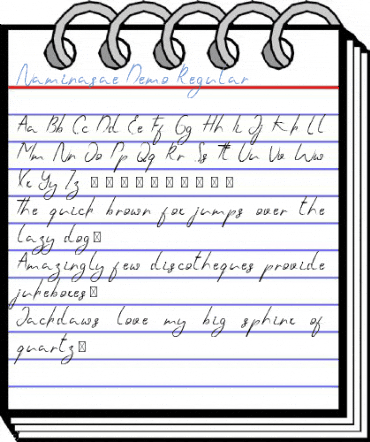 Naminasae Demo Regular
Aa Bb Cc Dd Ee Ff Gg Hh Ii Jj Kk Ll
Mm Nn Oo Pp Qq Rr Ss Tt Uu Vv Ww
Xx Yy Zz □ □ □ □ □ □ □ □ □ □
The quick brown fox jumps over the
lazy dog□
Amazingly few discotheques provide
jukeboxes□
Jackdaws love my big sphinx of
quartz□